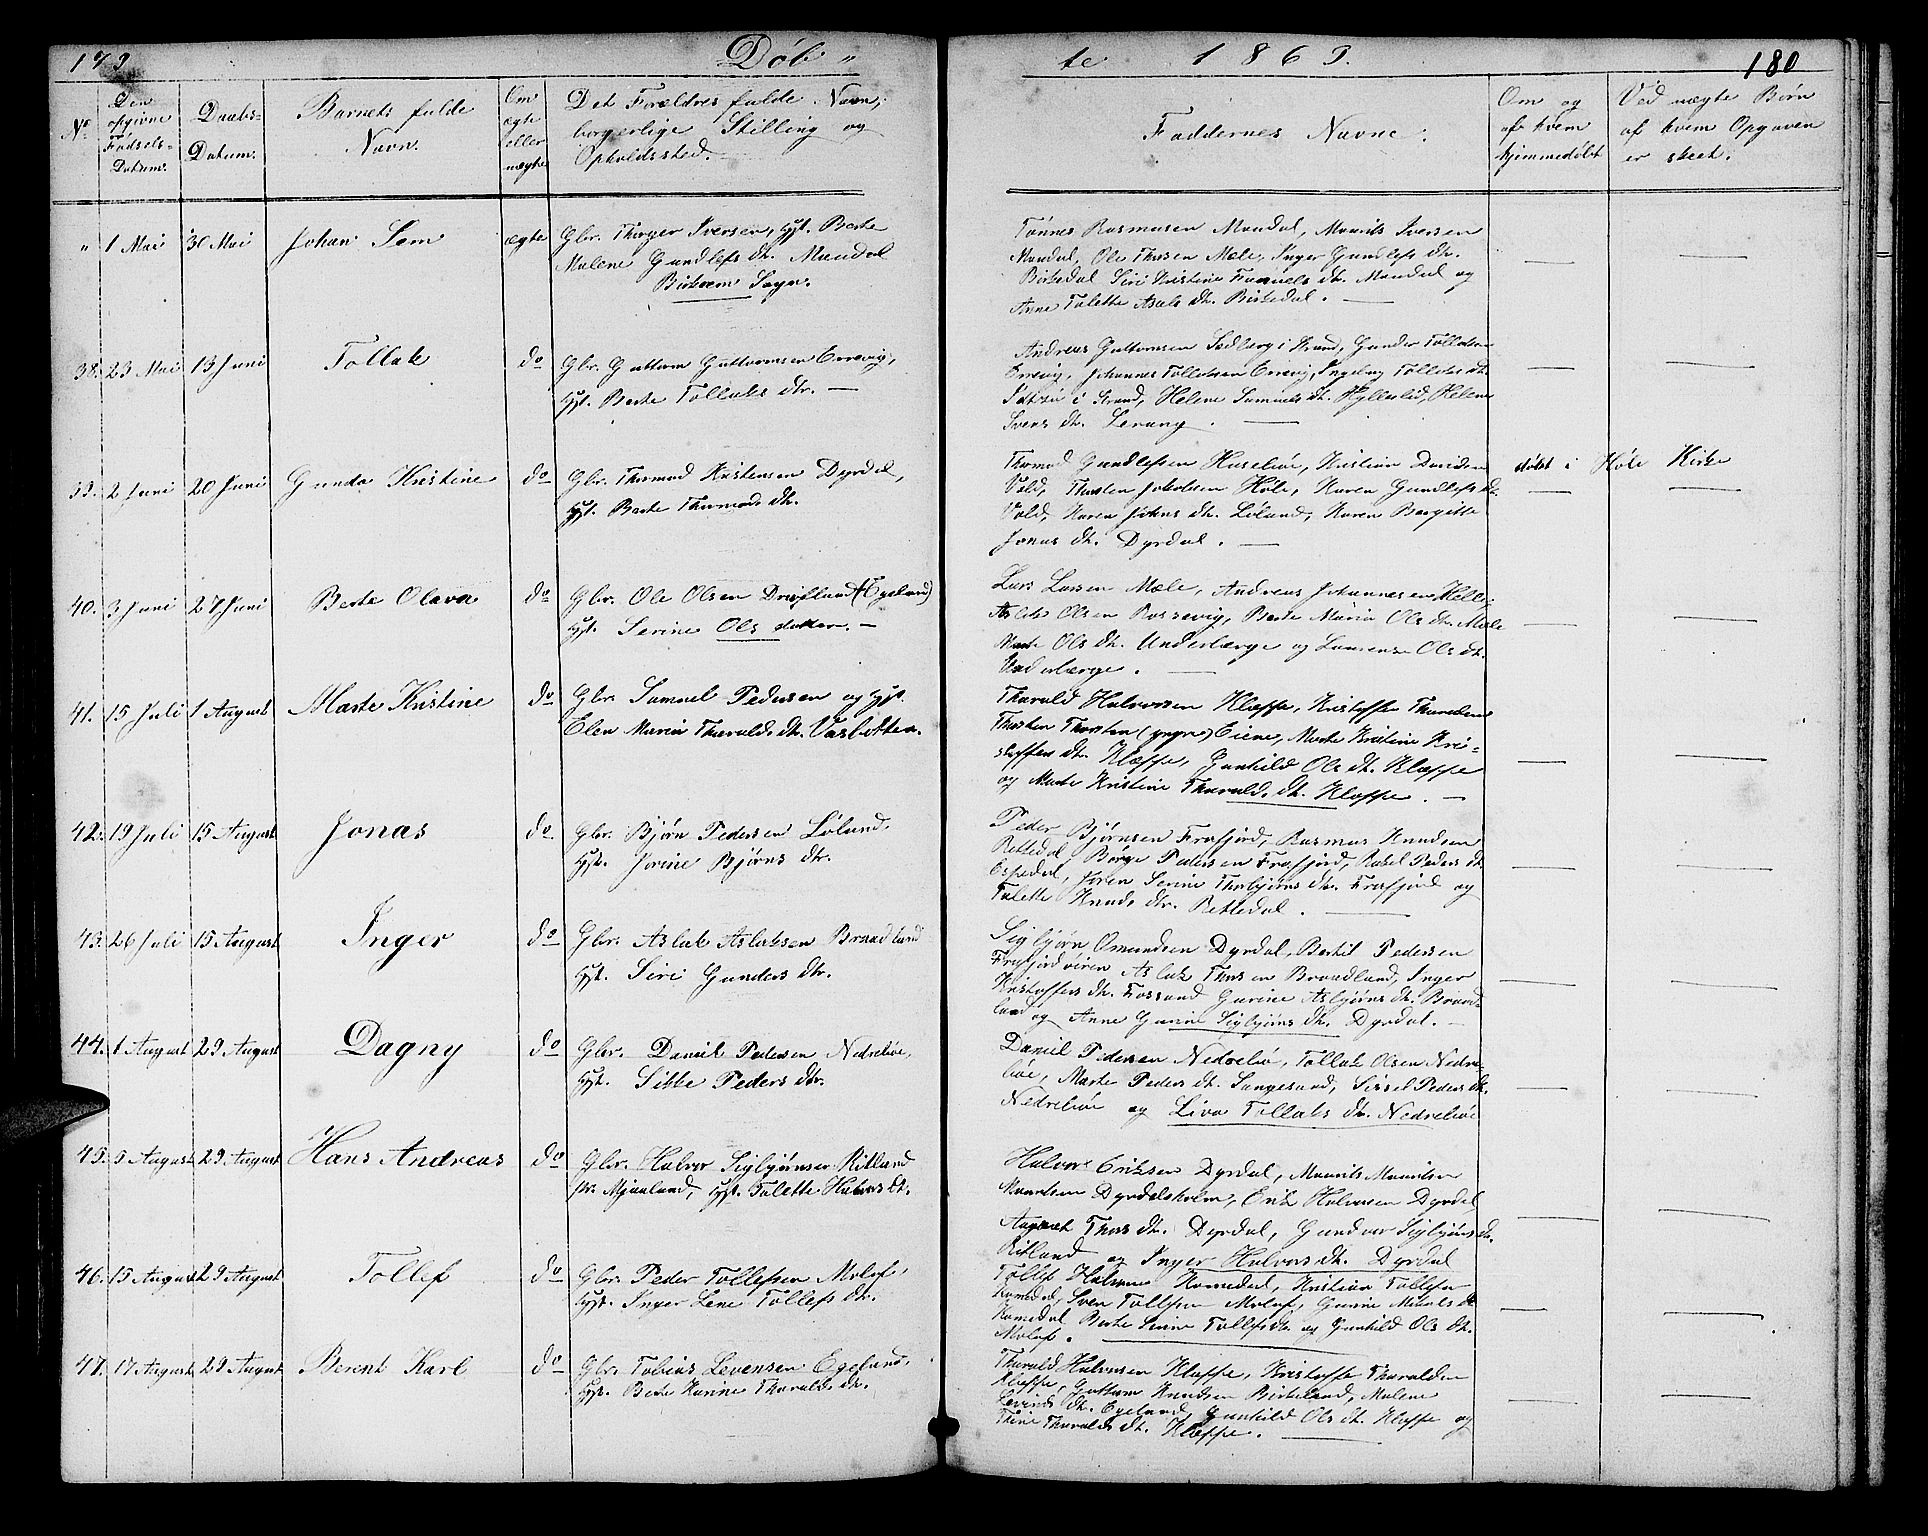 179 Døb " te 1869. 180
No. Den opgivne Fødsels-Datum. Daabs-Datum. Barnets fulde Navn. Om ægte eller uægte Det Forældres fulde Navn, borgerlige Stilling og Opholdssted. Faddernes Navne: Om og af hvem hjemmedøbt Ved uægte Børn af hvem Opgaven er skeet.
" 1 Mai 30 Mai Johan Sem ægte Gbr. Thorger Iversen, hst. Berte
Malene Gundlefs dt. Mandal
Birkrem Sogn.
Tønnes Rasmusen Mandal, Maurits Iversen
Mandal, Ole Thosen Mæle, Inger Gundlefs dt.
Birkedal Siri Kristine dt. Mandal og
Anne Tolette Asels dt. Birkedal. —
38. 23 Mai 13 Juni Tollak do Gbr. Guttorm Guttormsen Erevig,
hst. Berte Tollaks dtr. —
Andreas Guttormsen Sedberg i Strand, Gunder Tollaksen
Erevig, Johannes Tollaksen Erevig, Ingeborg Tollaks dt.
i Strand, Helene Samuels dt. Hyllesled, Helene
Svens dt. Lerang. —
39. 2 Juni 20 Juni Gunda Kristine do Gbr. Thormod Kristensen Dyrdal,
hst. Berte Thormods dt.
Thormod Gundlefsen Huseliøe, Kristian Davidsen døbt i Høle Kirke
Vold, Thorsten Jakobsen Høle, Karen Gundlefs dt.
Vold, Karen Johns dt. Løland, Karen Bergitte
Jonas dt. Dyrdal. —
40. 3 Juni 27 Juni Berte Olava do Gbr. Ole Olsen (Egeland)
hst. Serine Ols datter. —
Lars Larsen Mæle, Andreas Johannesen Helle,
Aslak Olsen Rossevig, Berte Maria Ols dt. Mæle
Marte Ols dt. Underberge og Laurense Ols dt.
Underberge. —
41. 15 Juli 1 August Marte Kristine do Gbr. Samuel Pedersen og hst.
Elen Maria Thoralds dt. Vasbotten.
Thorald Halvorsen Klæppe, Kristoffer Thoraldsen
Thosten Thorsten (yngre) Eiene, Marte Kristine Kri-
stoffers dt. Klæppe, Gunhild Ols dt. Klæppe
og Marte Kristine Thoralds dt. Klæppe. —
42. 19 Juli 15 August Jonas do Gbr. Bjørn Pedersen Løland,
hst. Jorine Bjørns dtr.
Peder Bjørnsen Frafjord, Rasmus Knudsen
Rettedal, Børge Pedersen Frafjord, Rakel Peders dt.
Espedal, Jøren Serine Thorbjørns dt. Frafjord og
Tolette Knuds dtr. Rettedal. —
43. 26 Juli 15 August Inger do Gbr. Aslak Aslaksen Braadland
hst. Siri Gunders dtr.
Sigbjørn Omundsen Dyrdal, Bertil Pedersen
Frafjord Aslak Thorsen Braadland, Inger
Kristoffers dt. Fossand Gurine Asbjørns dt. Braad-
land og Anne Gurine Sigbjørns dt. Dyrdal. —
44. 1 August 29 August Dagny do Gbr. Daniel Pedersen Nedreliøe,
hst. Sikke Peders dtr.
Daniel Pedersen Nedreliøe, Tollak Olsen Nedre-
liøe, Marte Peders dt. Sangesand, Sissel Peders dt.
Nedreliøe og Liva Tollaks dt. Nedreliøe
45. 5 August 29 August Hans Andreas do Gbr. Halvor Sigbjørnsen Ritland
fr. Mjaaland, hst. Tolette Halvors dt.
Halvor Eriksen Dyrdal, Maurits Mauritsen
Dyrdalsholm, Erik Halvorsen Dyrdal
Thors dt. Dyrdal, Gundvor Sigbjørns dt.
Ritland og Inger Halvors dt. Dyrdal
46. 15 August 29 August Tollef do Gbr. Peder Tollefsen Molaf,
hst. Inger Lene Tollefs dt.
Tollef Halvorsen Komedal, Kristian Tollefsen
Komedal, Sven Tollefsen Molaf, Gurine dt.
Komedal Berte Serine Tollefs dt. og Gunhild Ols dt.
Molaf.
47. 17 August 29 August Berent Karl do Gbr. Tobias Levensen Egeland,
hst. Berte Karine Thoralds dt.
Thorald Halvorsen Klæppe, Kristoffer Thoraldsen
Klæppe, Guttorm Knudsen Birkeland, Malene
Levinds dt. Egeland, Gunhild Ols dt. Klæppe og
Thine Thoralds dt. Klæppe. —